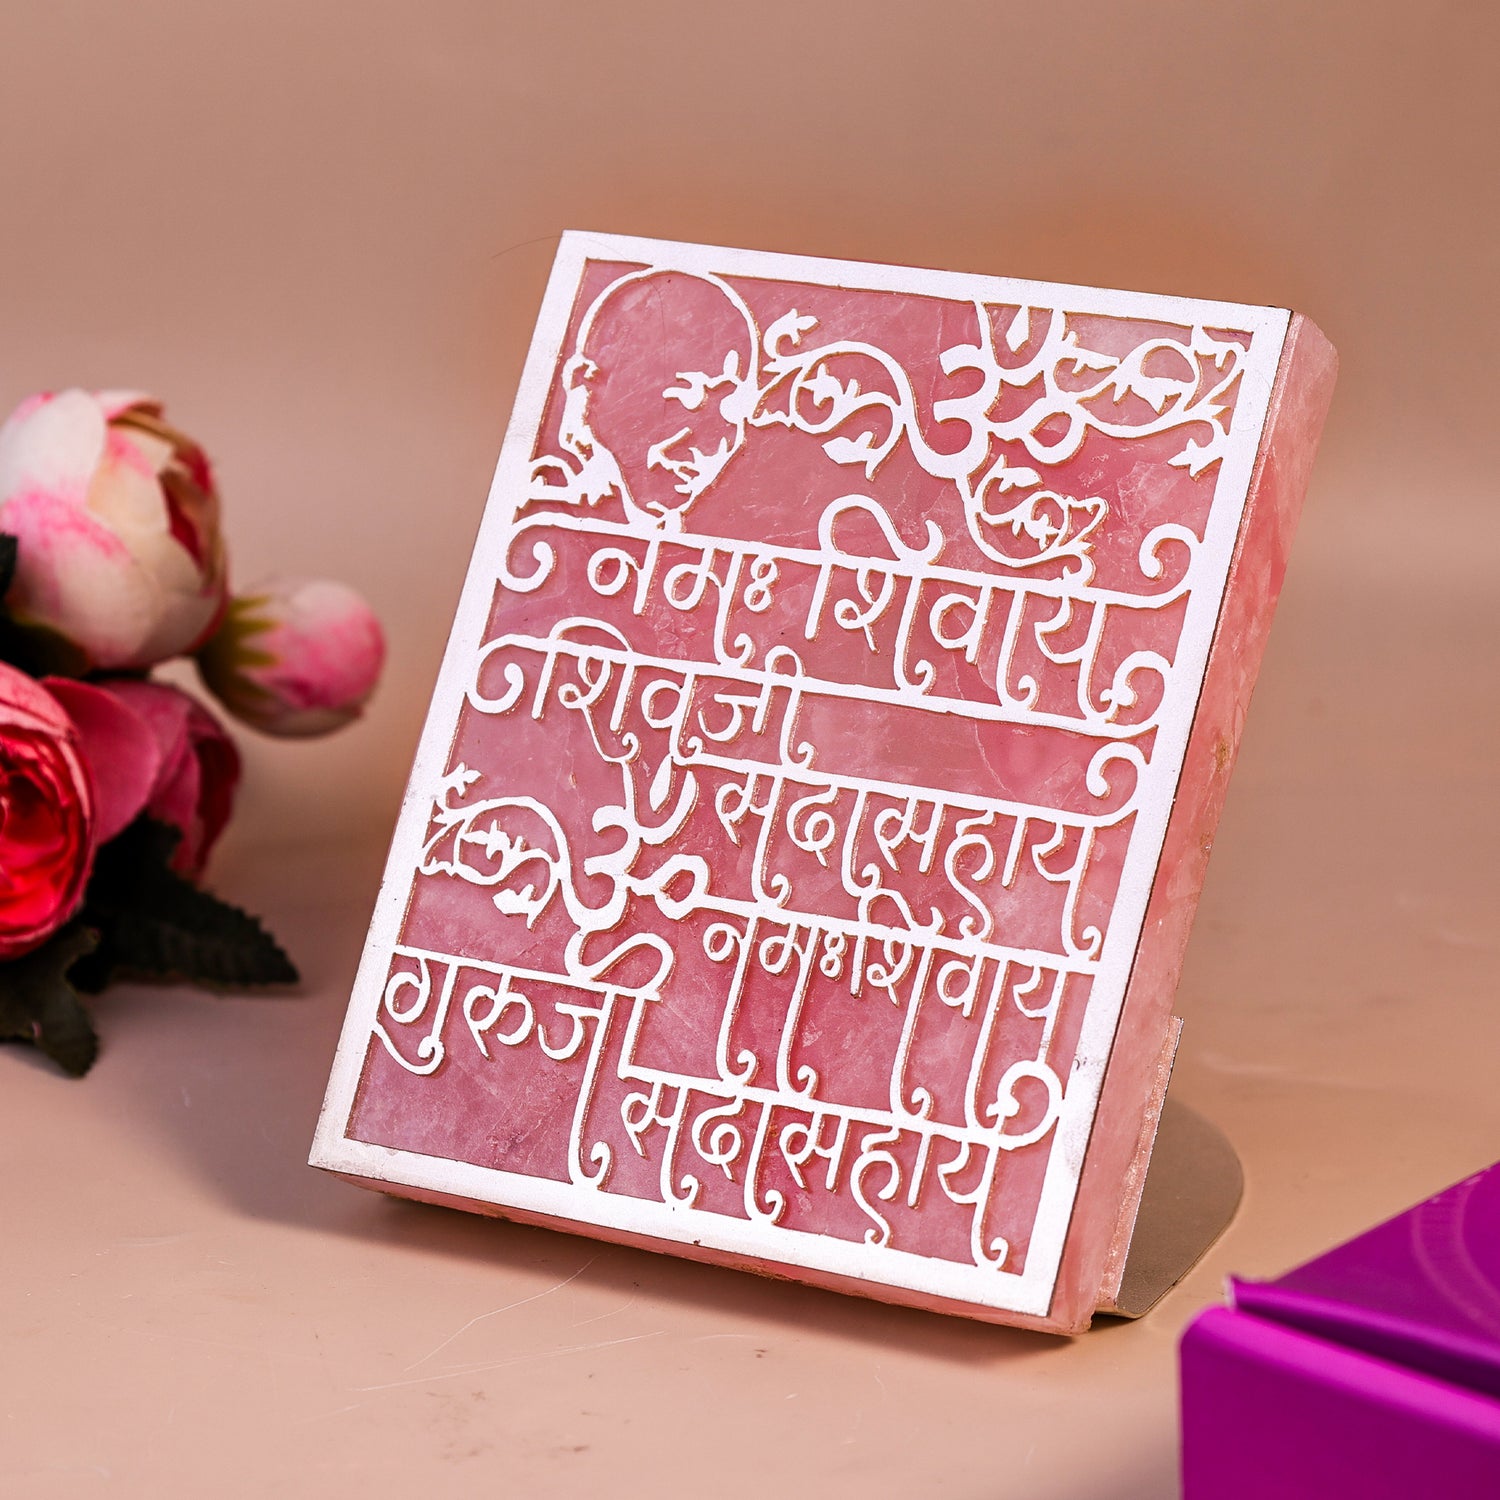 ॐ
नमः शिवाय
शिवजी
सदा सहाय
ॐ नमः शिवाय
गुरूजी
सदा सहाय